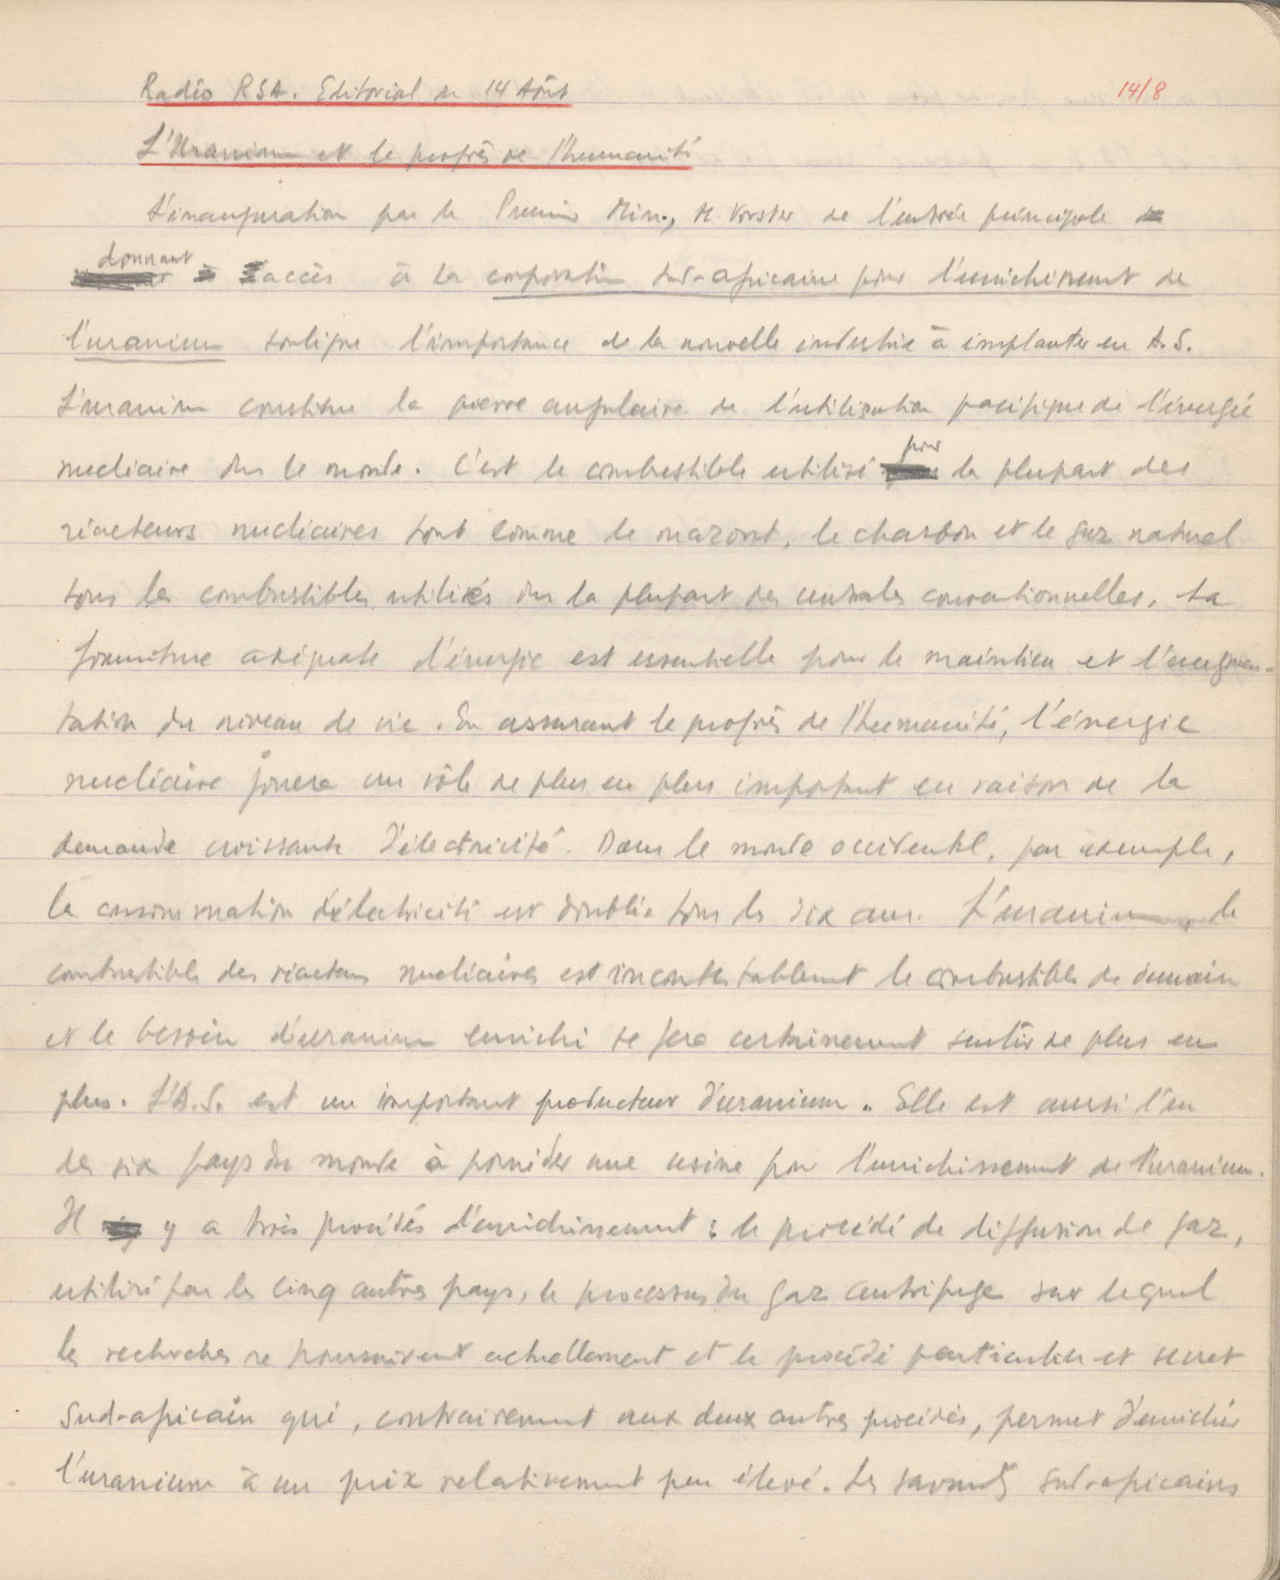 Radio RSA. Editorial du 14 Août
14/8
L'Uranium et le progrès de l'humanité
L'inauguration par le Premier Min., M. Vorster de l'entrée principale
donnant
accès à la corporation sud-africaine pour l'enrichissement de
l'uranium souligne l'importance de la nouvelle industrie à implanter en A.S.
L'uranium constitue la pierre angulaire de l'utilisation pacifique de l'énergie
nucléaire dns le monde. C'est le combustible utilisé pour la plupart des
réacteurs nucléaires tout comme le mazout, le charbon et le gaz naturel
sont les combustibles utilisés dns la plupart des centrales conventionnelles. La
fourniture adéquate d'énergie est essentielle pour le maintien et l'augmen-
tation du niveau de vie. En assurant le progrès de l'humanité, l'énergie
nucléaire jouera un rôle de plus en plus important en raison de la
demande croissante d'électricité. Dans le monde occidental, par exemple,
la consommation d'électricité est doublée tous les dix ans. L'uranium, le
combustible des réacteurs nucléaires est incontestablement le combustible de demain
et le besoin d'uranium enrichi se fera certainement sentir de plus en
plus. L'A.S. est un important producteur d'uranium. Elle est aussi l'un
des six pays du monde à posséder une usine pour l'enrichissement de l'uranium.
Il y a trois procédés d'enrichissement : le procédé de diffusion de gaz,
utilisé par les cinq autres pays, le processus du gaz centrifuge sur lequel
les recherches se poursuivent actuellement et le procédé particulier et secret
Sud-africain qui, contrairement aux deux autres procédés, permet d'enrichir
l'uranium à un prix relativement peu élevé. Les savants sud-africains